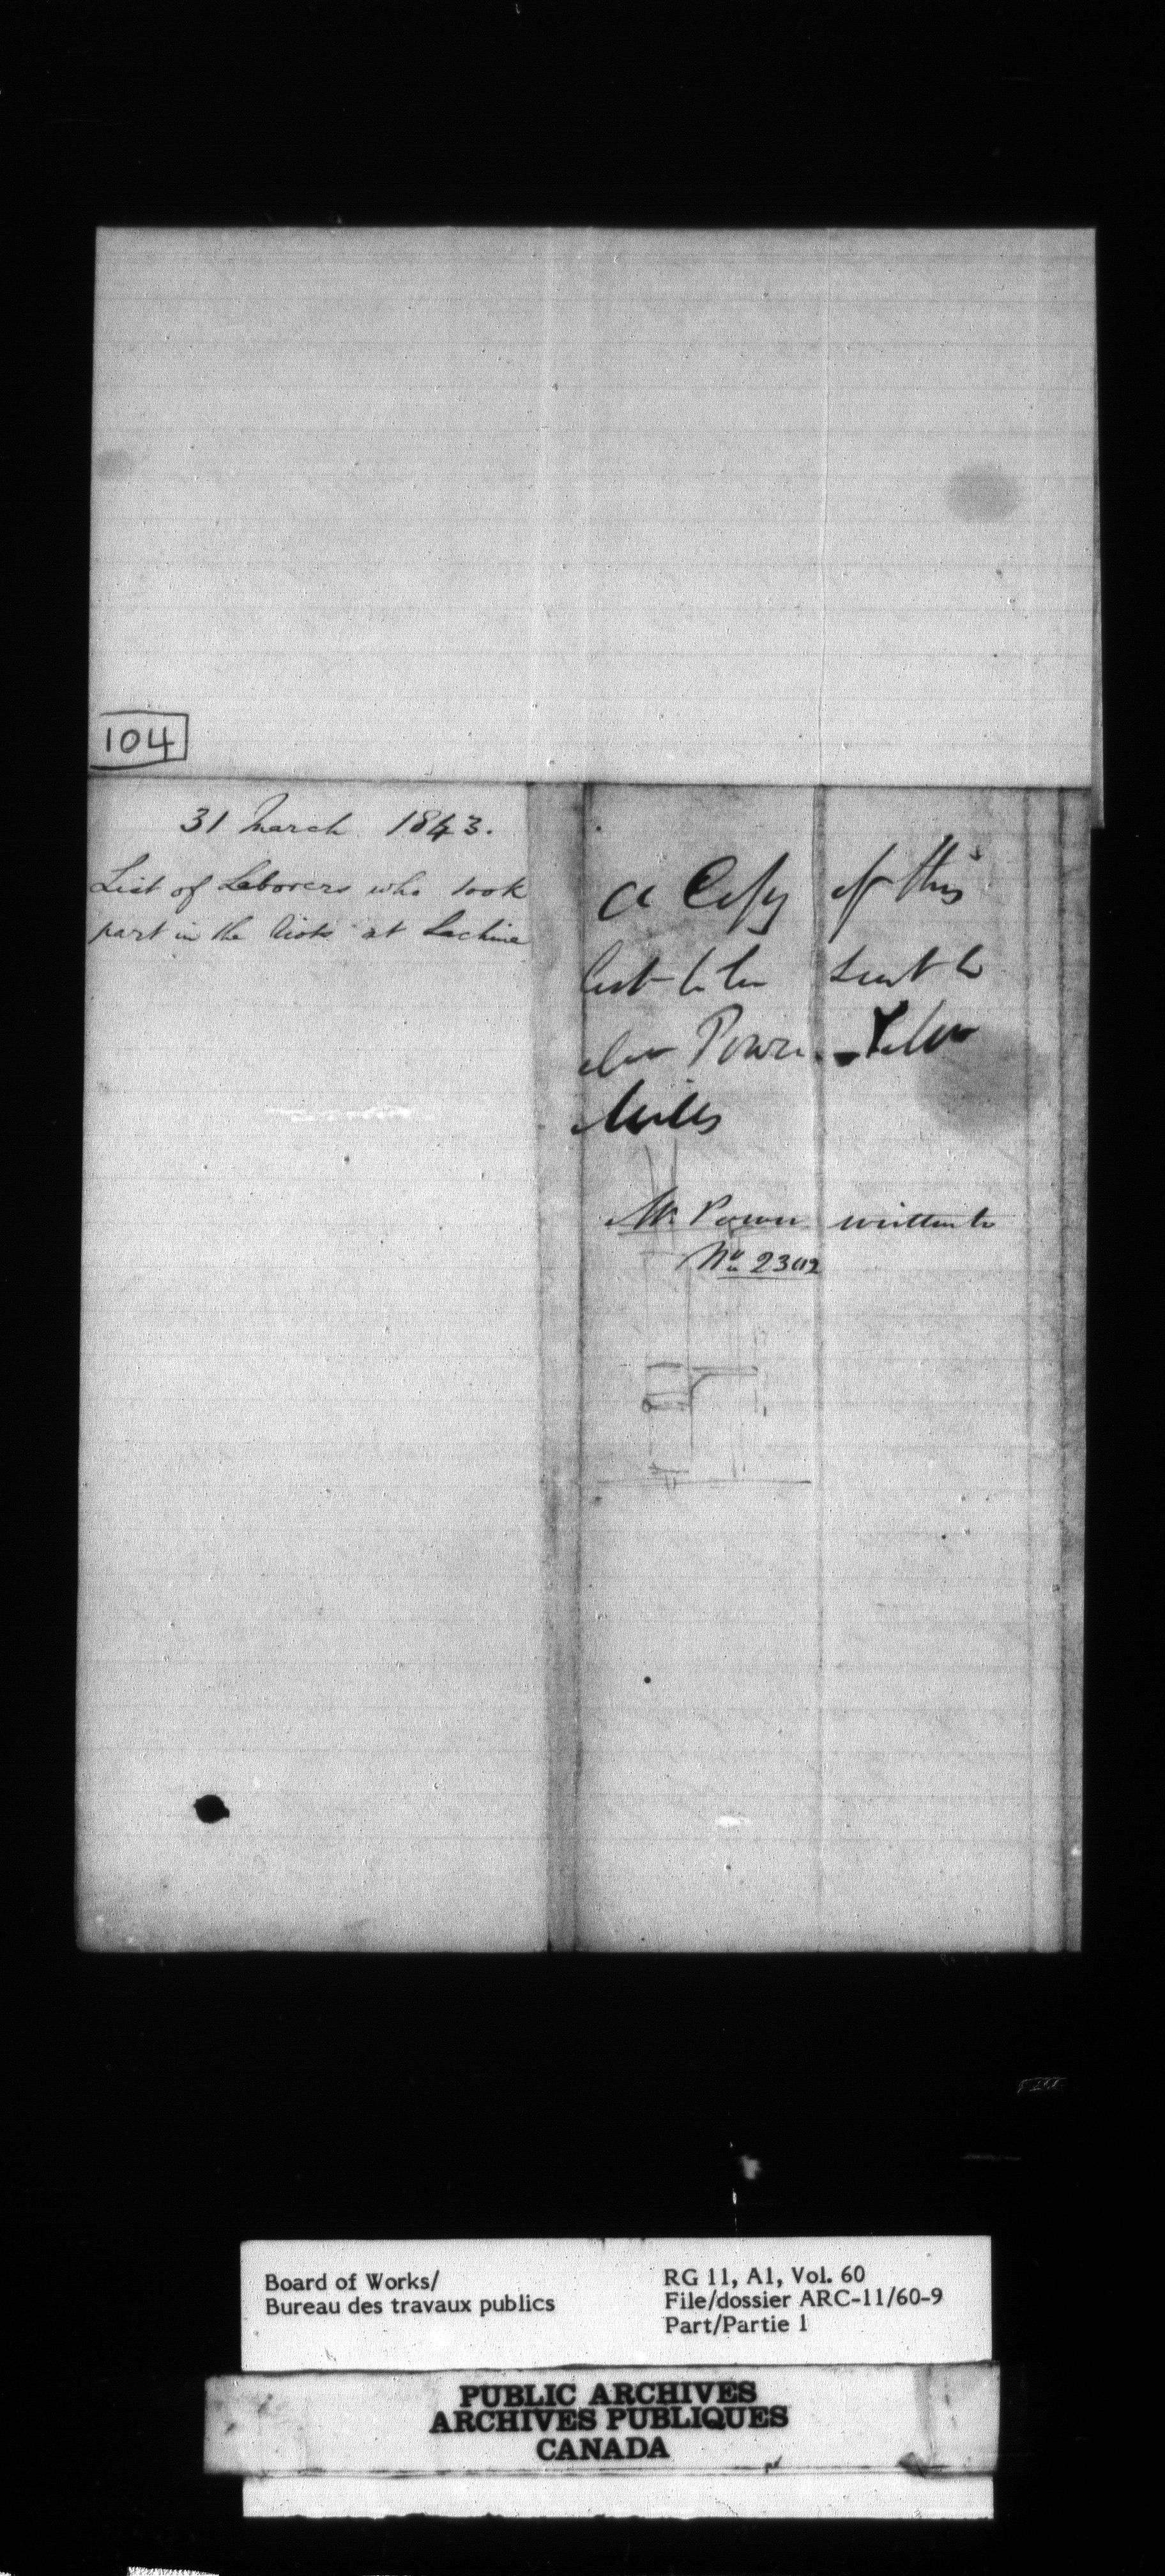 104
31 March 1843.
List of Laborers who took
part in the Riots at Lachine
A Copy of this
list to be sent to
Mr Power - & Mr
Mills
Mr Power written to
No
Board of Works/
Bureau des travaux publics
RG 11, A1, Vol. 60
File/dossier ARC-11/60-9
Part/Partie 1
PUBLIC ARCHIVES
ARCHIVES PUBLIQUES
CANADA